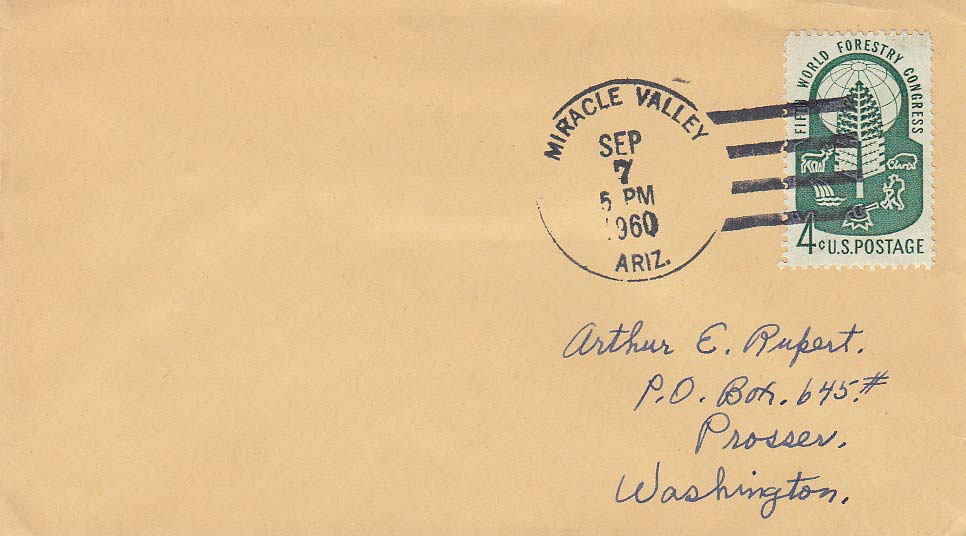 FIFTH WORLD FORESTRY CONGRESS
4c U.S. POSTAGE
MIRACLE VALLEY
SEP
7
5 PM
1960
ARIZ.
Arthur E. Rupert.
P.O. Box. 645.#
Prosser.
Washington.